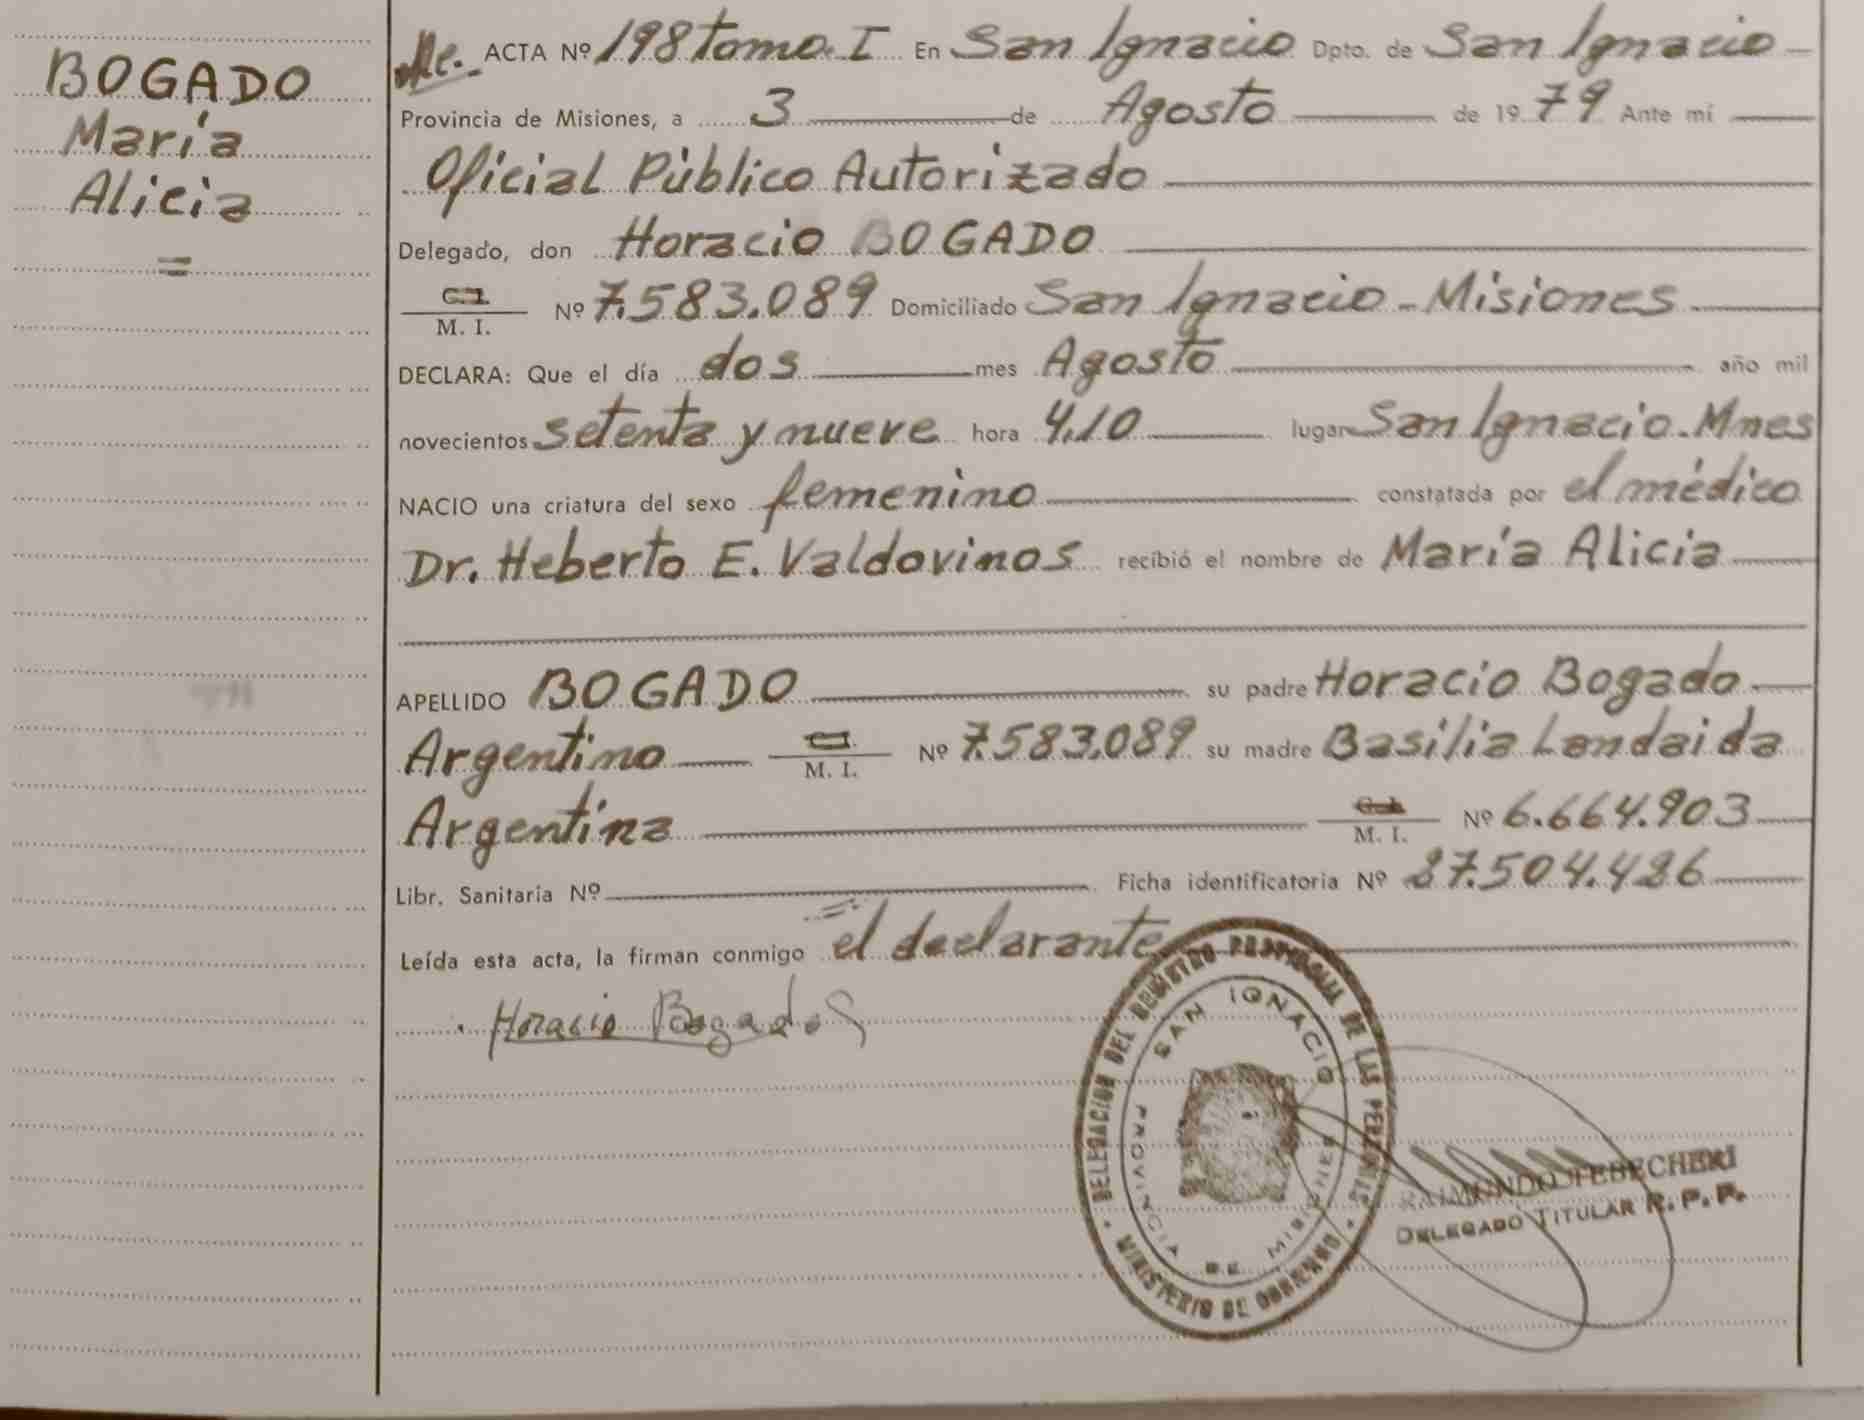 BOGADO
María
Alicia
=
ACTA Nº 198 tomo. I En San Ignacio Dpto. de San Ignacio
Provincia de Misiones, a 3 de Agosto de 1979 Ante mí
Oficial Público Autorizado
Delegado, don Horacio BOGADO
C. I.
M. I. Nº 7.583.089 Domiciliado San Ignacio - Misiones
DECLARA: Que el día dos mes Agosto año mil
novecientos setenta y nueve hora 4.10 lugar San Ignacio. Mnes
NACIO una criatura del sexo femenino constatada por el médico
Dr. Heberto E. Valdovinos recibió el nombre de María Alicia
APELLIDO BOGADO su padre Horacio Bogado
Argentino M. I. Nº 7.583.089 su madre Basilia Landaida
Argentina M. I. Nº 6.664.903
Libr. Sanitaria Nº Ficha identificatoria Nº 27.504.426
Leída esta acta, la firman conmigo el declarante
Horacio Bogado
DELEGACION DEL REGISTRO PROVINCIAL DE LAS PERSONAS
SAN IGNACIO
PROVINCIA DE MISIONES
MINISTERIO DE GOBIERNO
DELEGADO TITULAR R. P. P.